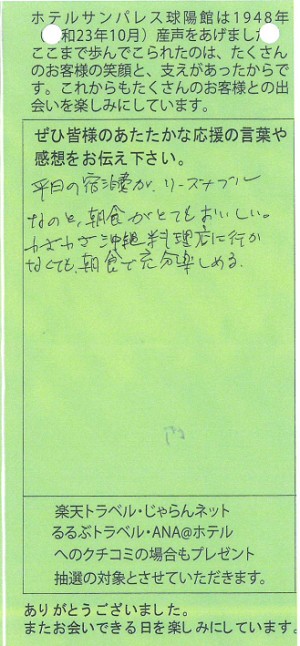 ホテルサンパレス球陽館は1948年
和23年10月）産声をあげました
ここまで歩んでこられたのは、たくさん
のお客様の笑顔と、支えがあったからで
す。これからもたくさんのお客様との出
会いを楽しみにしています。
ぜひ皆様のあたたかな応援の言葉や
感想をお伝え下さい。
平日の宿泊費が、リーズナブル
なのと、朝食がとてもおいしい。
わざわざ沖縄料理店に行か
なくても、朝食で充分楽しめる。
楽天トラベル・じゃらんネット
るるぶトラベル・ANA@ホテル
へのクチコミの場合もプレゼント
抽選の対象とさせていただきます。
ありがとうございました。
またお会いできる日を楽しみにしています。